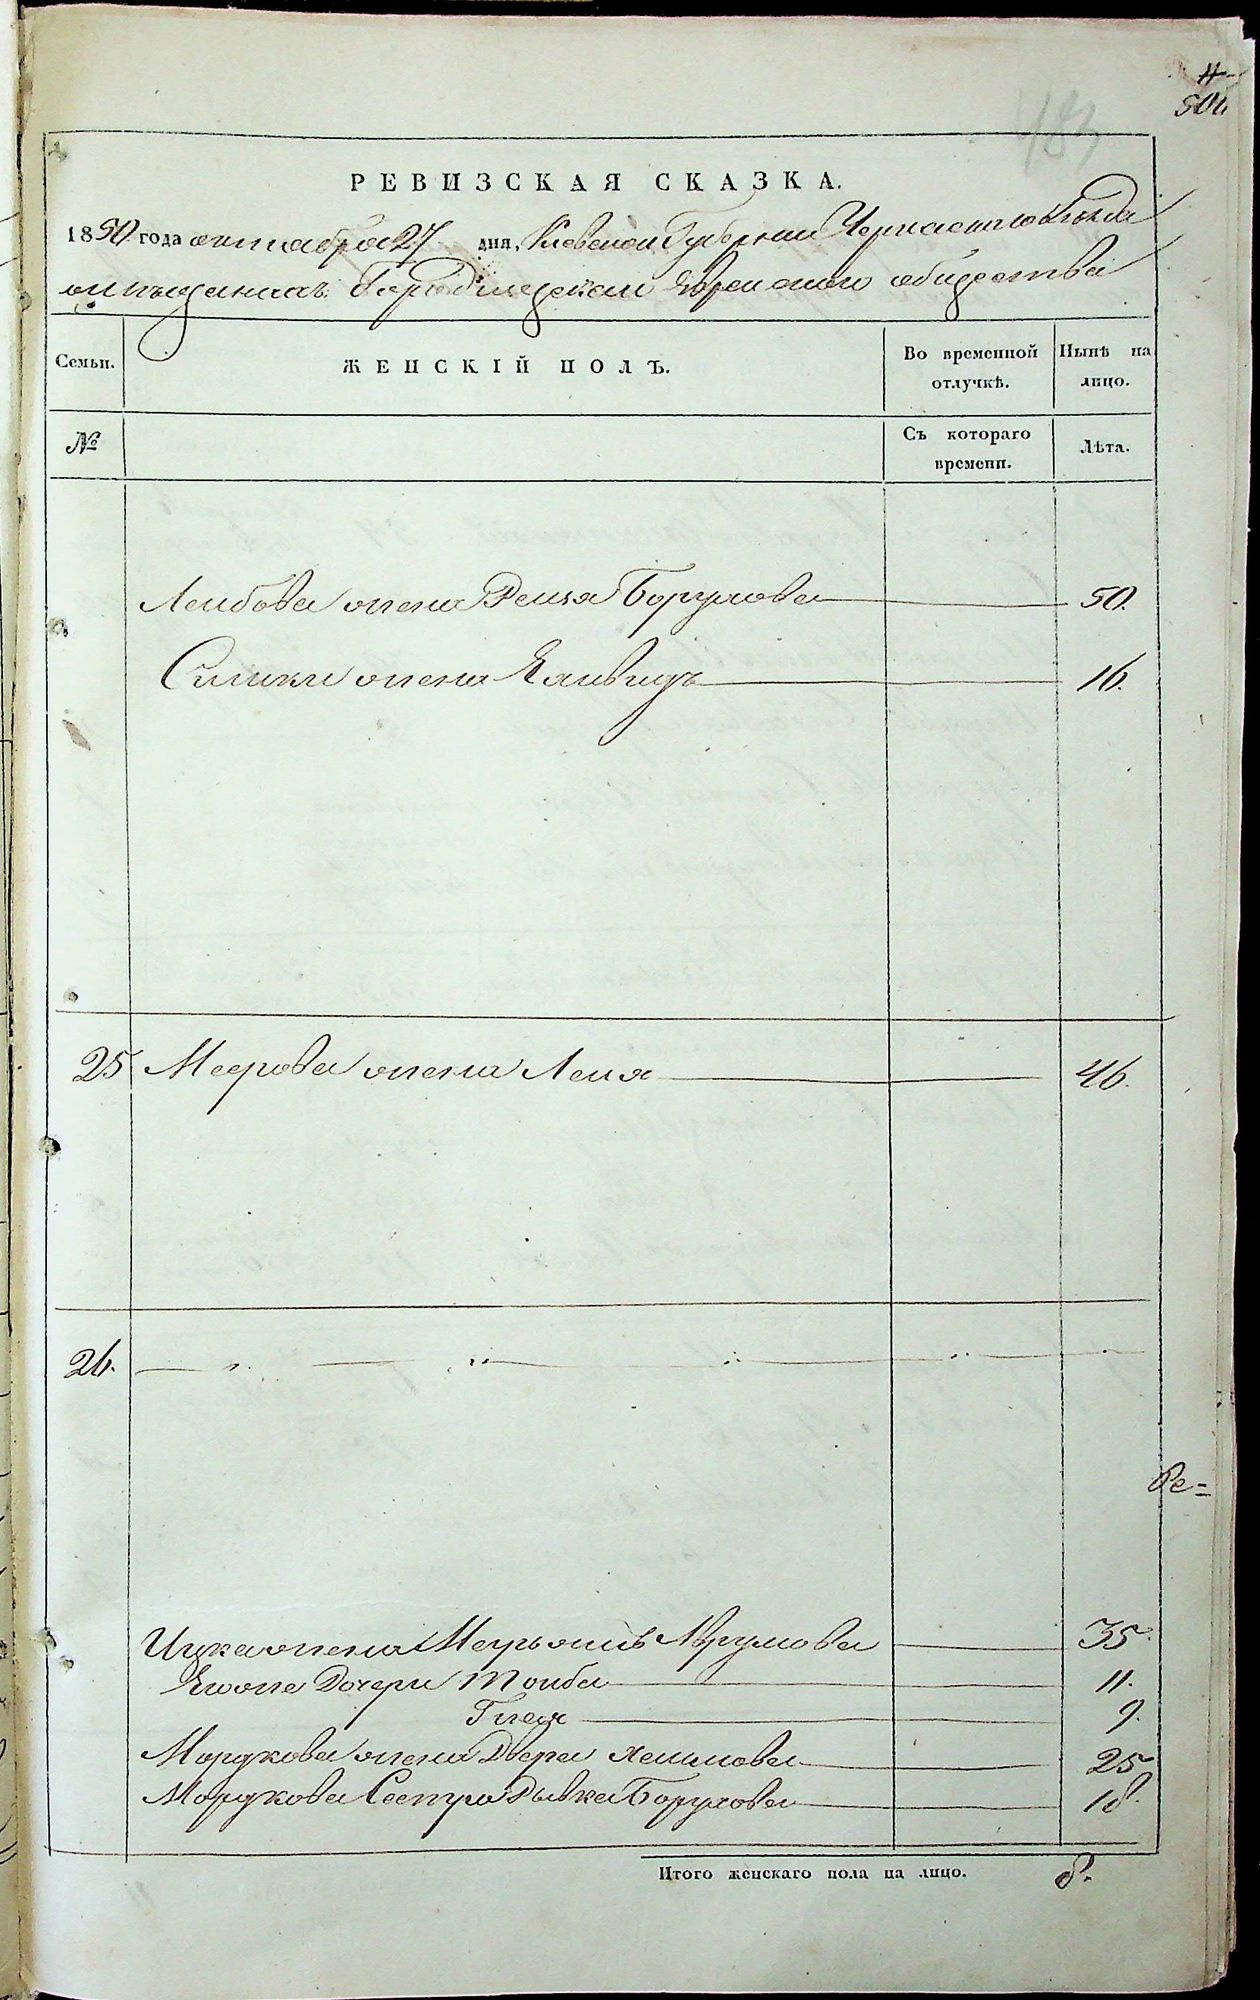 504
РЕВИЗСКАЯ СКАЗКА.
1850 года октября 27 дня, Киевской Губернии Черкаскаго Уезда
о мещанахъ Городищескаго Еврейского общества
Семьи. ЖЕНСКІЙ ПОЛЪ. Во временной отлучкѣ. Нынѣ на лицо.
№ Съ котораго времени. Лѣта.
Лейбова жена Рейзя Борухова 50.
жена 16.
25 Меерова жена Лея 46.
26.
Ре=
Ицка жена Меръямъ Аврумова 35.
Его же Дочери Тойба 11.
9.
Мордкова жена Двера Хаимова 25
Мордкова Сестра Рывка Борухова 18.
Итого женскаго пола на лицо. 8.